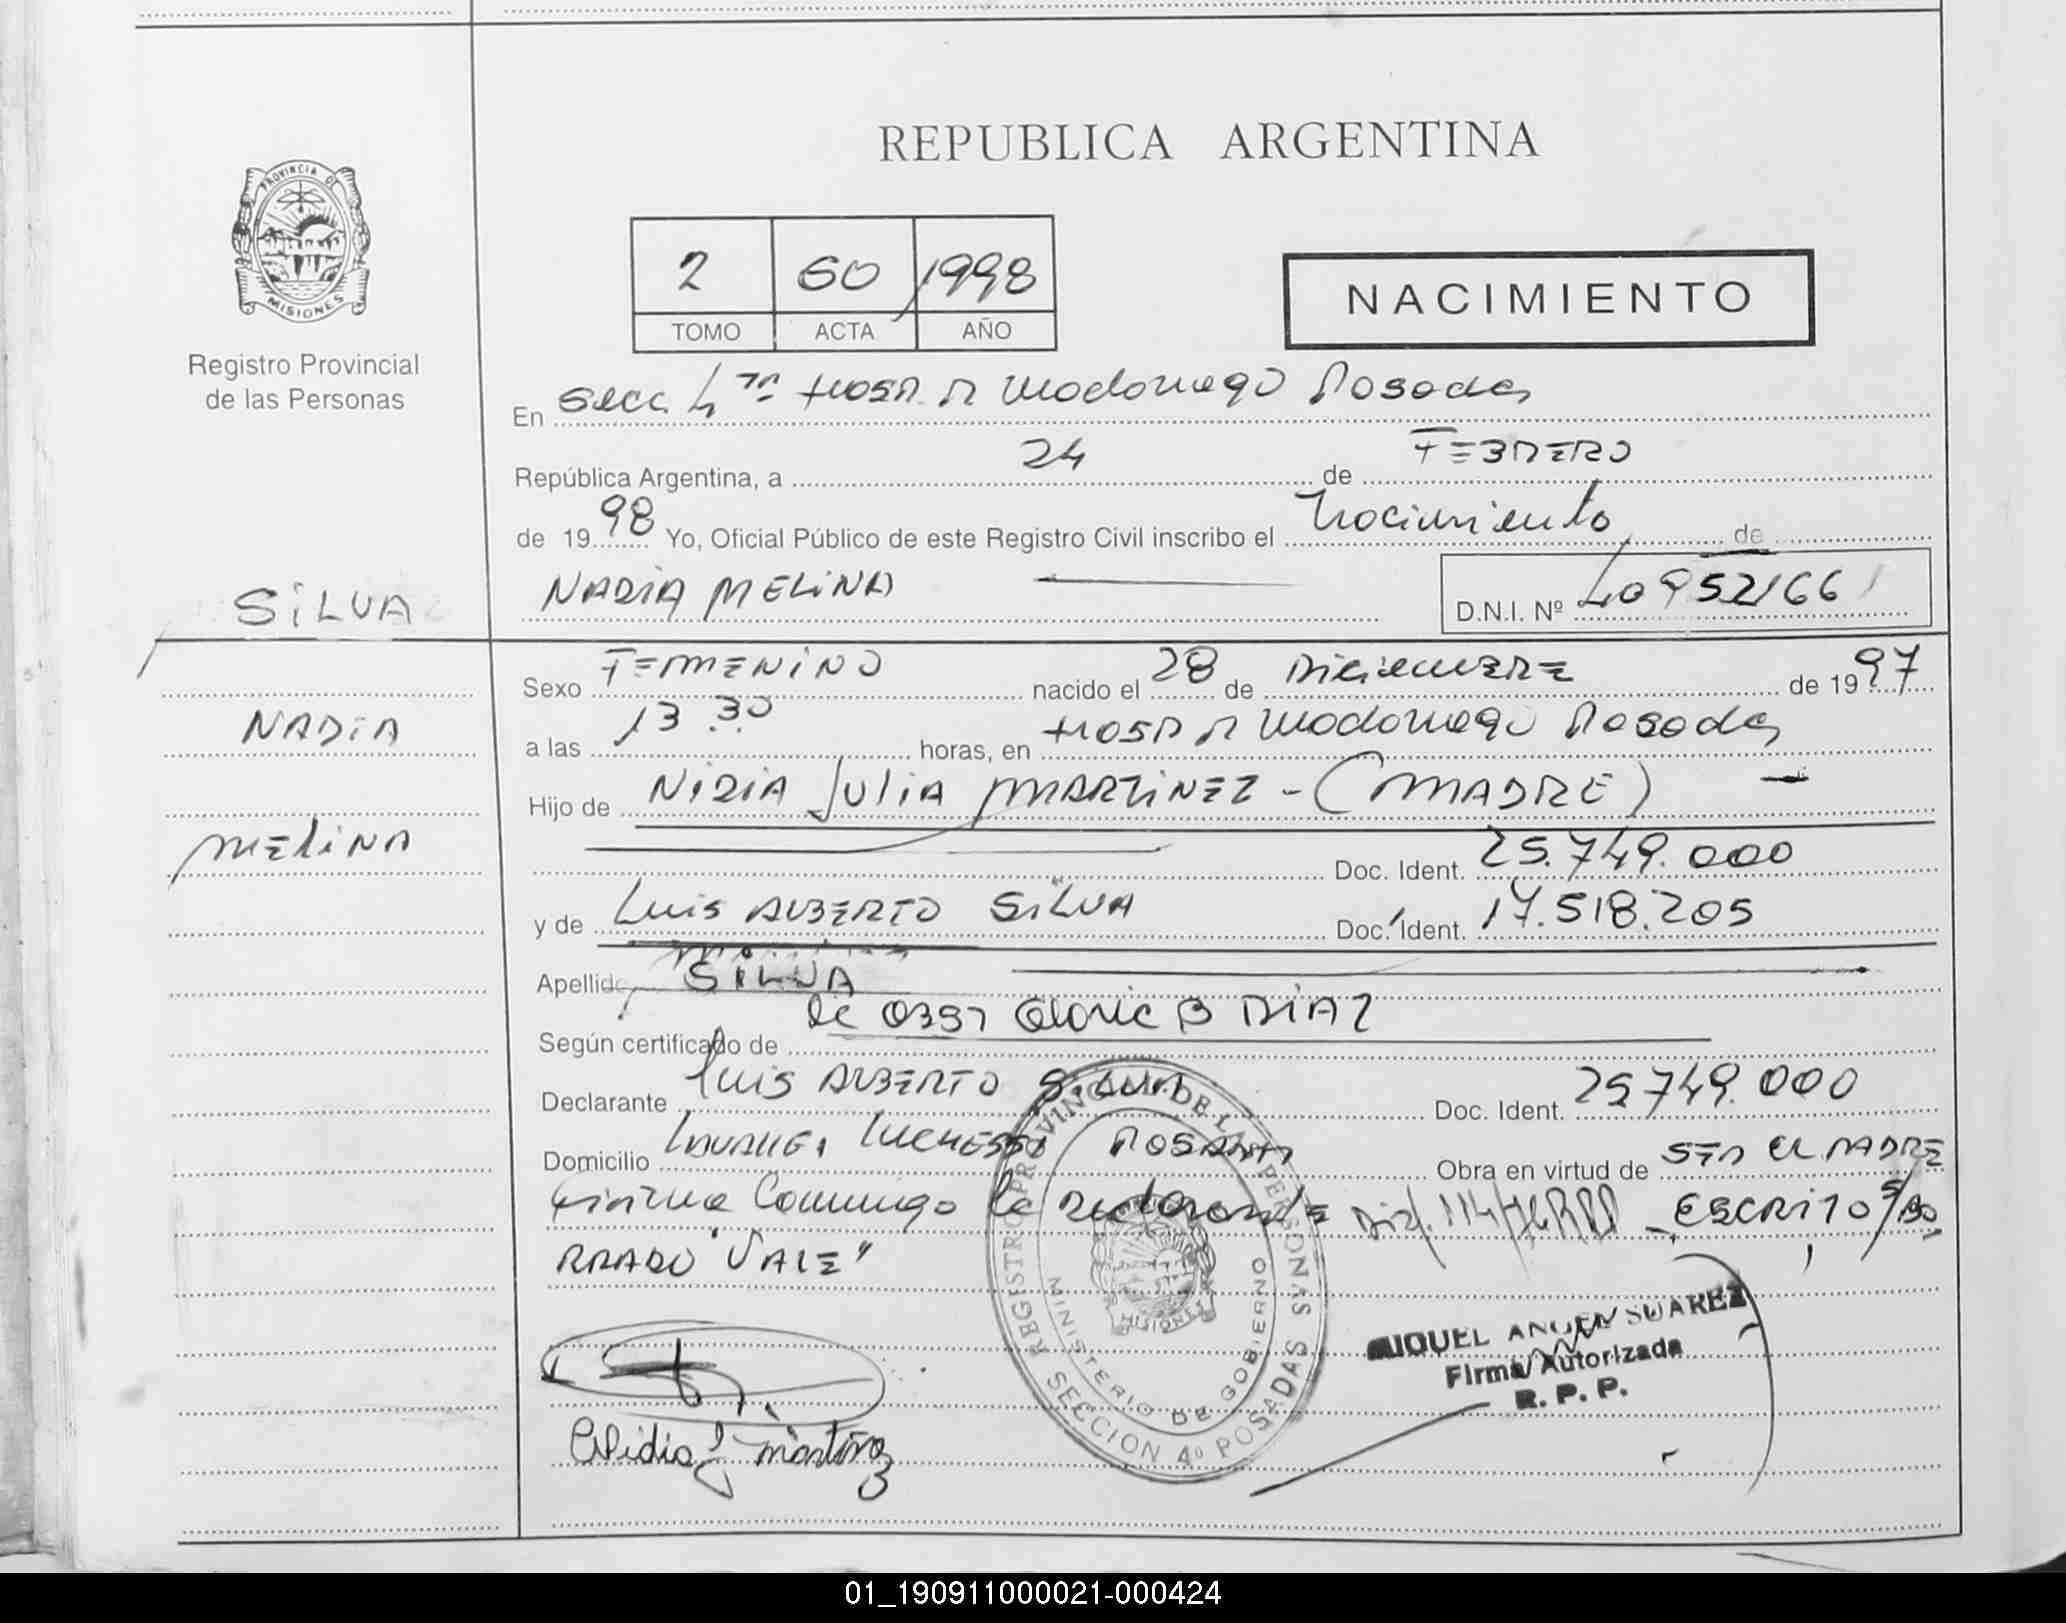 REPUBLICA ARGENTINA
PROVINCIA DE
MISIONES
Registro Provincial
de las Personas
2 60 1998
TOMO ACTA AÑO
NACIMIENTO
En Secc 4ta Hosp R Madariaga Posadas
República Argentina, a 24 de FEBRERO
de 1998 Yo, Oficial Público de este Registro Civil inscribo el nacimiento de
SILVA
NADIA MELINA
D.N.I. Nº 40952166
Sexo FEMENINO nacido el 28 de DICIEMBRE de 1997
NADIA
a las 13 30 horas, en HOSP R Madariaga Posadas
Hijo de NIDIA JULIA MARTINEZ - (MADRE) -
MELINA
Doc. Ident. 25.749.000
y de LUIS ALBERTO SILVA Doc. Ident. 17.518.205
Apellido SILVA
Según certificado de Lc 0357 B DIAZ
Declarante LUIS ALBERTO SILVA Doc. Ident. 25749.000
Domicilio POSADAS Obra en virtud de SER EL PADRE
Firma Conmigo la declarante ESCRITO S/BO
RRADO "VALE"
REGISTRO PROVINCIAL DE LAS PERSONAS
MINISTERIO DE GOBIERNO
MISIONES
SECCION 4º POSADAS
MIGUEL ANGEL SUAREZ
Firma Autorizada
R. P. P.
01_190911000021-000424